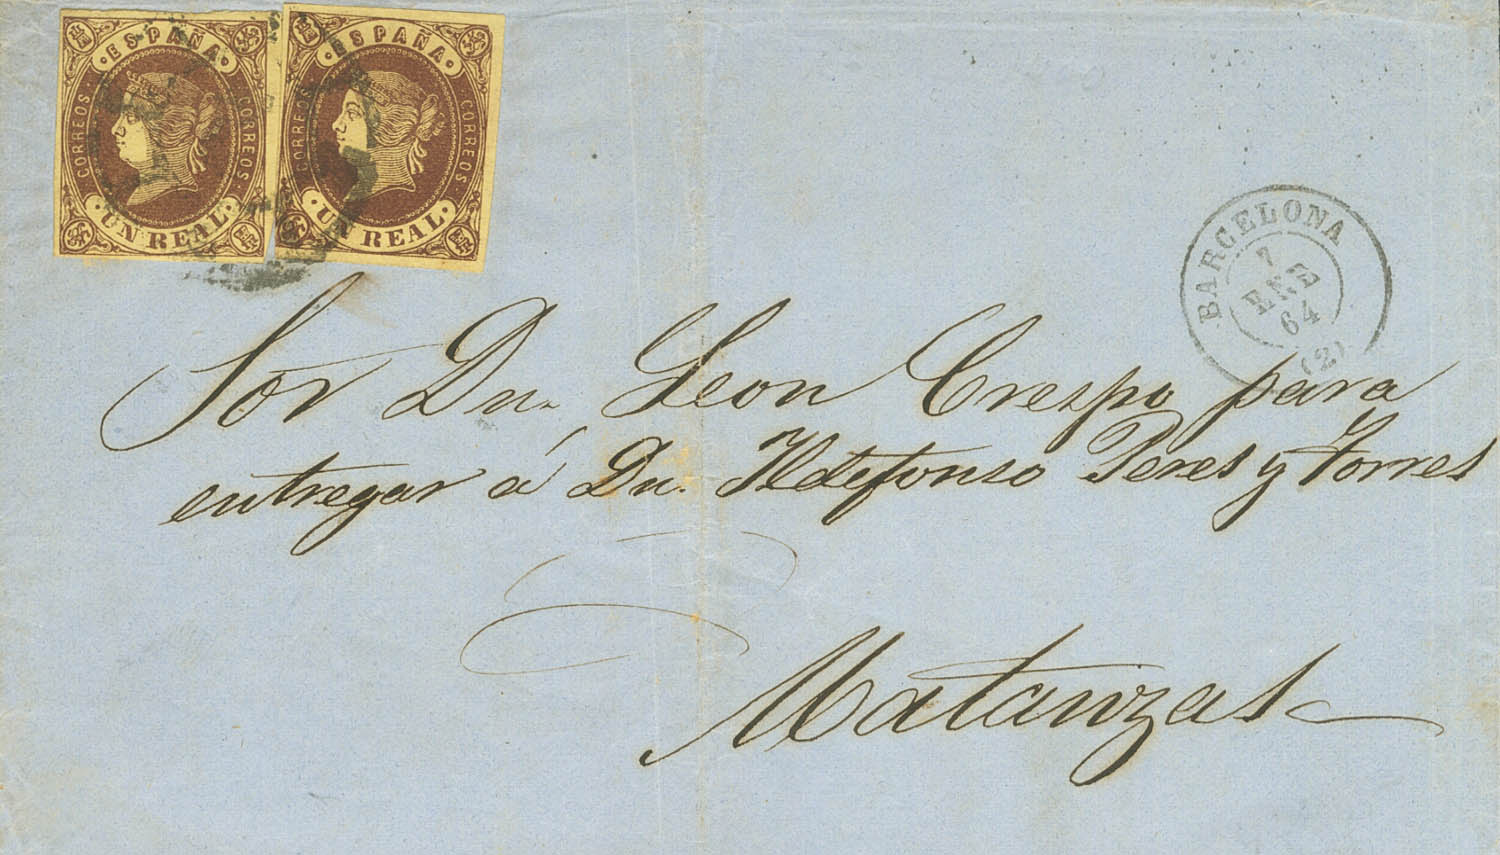 ESPAÑA
CORREOS · CORREOS
UN REAL
ESPAÑA
CORREOS · CORREOS
UN REAL
BARCELONA
7
ENE
64
(2)
Sor Dn. Leon Crespo para
entregar á Dn. Ildefonso Peres y Torres
Matanzas